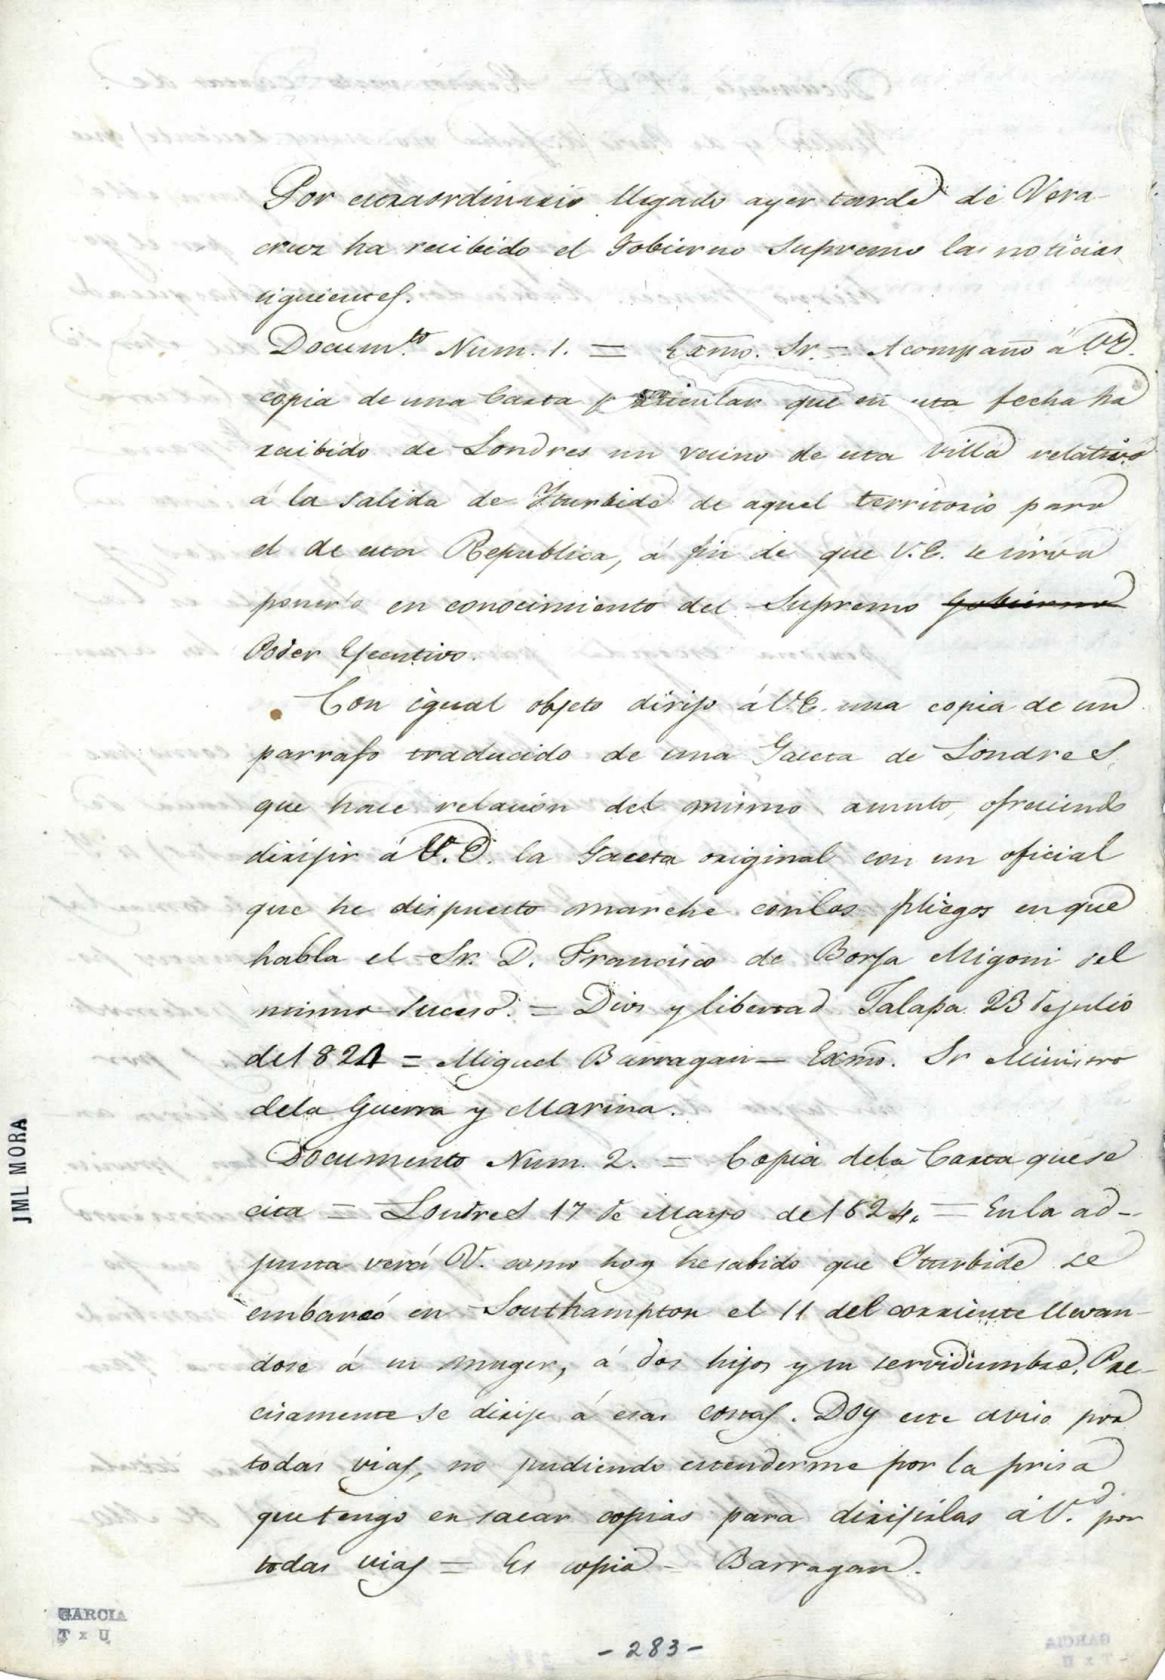 Por extraordinario llegado ayer tarde de Vera-
cruz ha recibido el Gobierno Supremo las noticias
siguientes.
Docum.to Num. 1. = Exmo. Sr. = Acompaño á VE.
copia de una Carta particular que en esta fecha ha
recibido de Londres un vecino de esta Villa relativo
á la salida de Iturbide de aquel territorio para
el de esta Republica, á fin de que V.E. se sirva
ponerlo en conocimiento del Supremo Gobierno
Poder Ejecutivo.
Con igual objeto dirijo á V.E. una copia de un
parrafo traducido de una Gaceta de Londres
que hace relacion del mismo asunto, ofreciendo
dirijir á V.E. la Gaceta original con un oficial
que he dispuesto marche con los pliegos en que
habla el Sr. D. Francisco de Borja Migoni del
mismo suceso. = Dios y libertad Jalapa 23 de julio
de 1824 = Miguel Barragan = Exmo. Sr Ministro
dela Guerra y Marina.
Documento Num. 2. = Copia dela Carta que se
cita = Londres 17 de Mayo de 1824. = En la ad-
junta verá V. como hoy he sabido que Iturbide se
embarcó en Southampton el 11 del corriente llevan-
dose á su muger, á dos hijos y su servidumbre. Pre-
cisamente se dirije á esas costas. Doy este aviso por
todas vias, no pudiendo estenderme por la prisa
que tengo en sacar copias para dirijirlas á V.d por
todas vias = Es copia = Barragan.
JML MORA
GARCIA
T x U
- 283 -